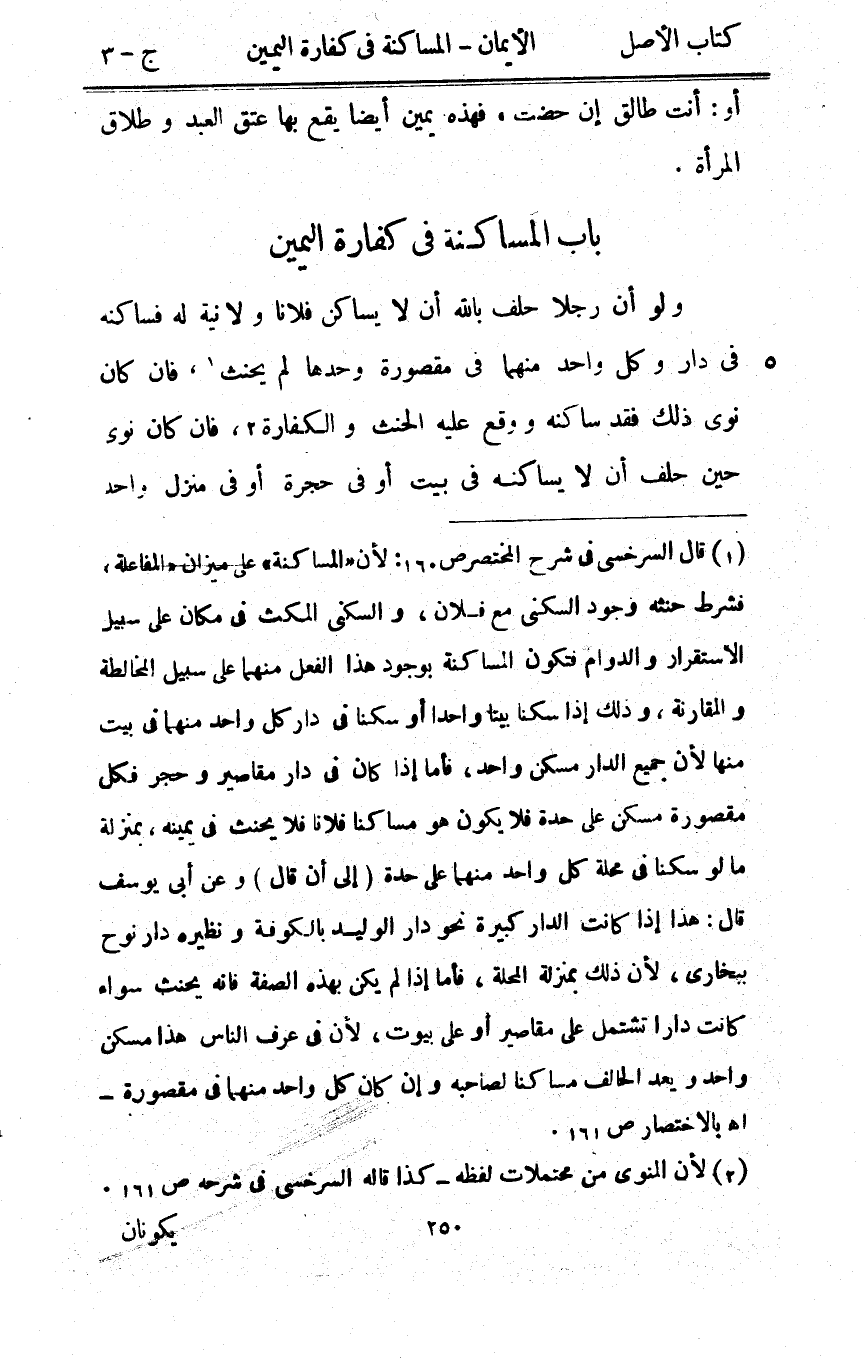 كتاب الأصل الأيمان – المساكنة فى كفارة اليمين ج – ٣
أو: أنت طالق إن حضت، فهذه يمين أيضا يقع بها عتق العبد و طلاق
المرأة .
باب المساكنة فى كفارة اليمين
و لو أن رجلا حلف بالله أن لا يساكن فلانا و لا نية له فساكنه
فى دار و كل واحد منهما فى مقصورة وحدها لم يحنث ١ ، فان كان ٥
نوى ذلك فقد ساكنه و وقع عليه الحنث و الكفارة ٢ ، فان كان نوى
حين حلف أن لا يساكنه فى بيت أو فى حجرة أو فى منزل واحد
(١) قال السرخسى فى شرح المختصر ص ١٦٠: لأن «المساكنة» على ميزان «المفاعلة» ،
فشرط حنثه وجود السكنى مع فلان ، و السكنى المكث فى مكان على سبيل
الاستقرار و الدوام فتكون المساكنة بوجود هذا الفعل منهما على سبيل المخالطة
و المقارنة ، و ذلك إذا سكنا بيتا واحدا أو سكنا فى دار كل واحد منهما فى بيت
منها لأن جميع الدار مسكن واحد ، فأما إذا كان فى دار مقاصير و حجر فكل
مقصورة مسكن على حدة فلا يكون هو مساكنا فلانا فلا يحنث فى يمينه ، بمنزلة
ما لو سكنا فى محلة كل واحد منهما على حدة ( إلى أن قال ) و عن أبى يوسف
قال : هذا إذا كانت الدار كبيرة نحو دار الوليد بالكوفة و نظيره دار نوح
ببخارى ، لأن ذلك بمنزلة المحلة ، فأما إذا لم يكن بهذه الصفة فانه يحنث سواء
كانت دارا تشتمل على مقاصير أو على بيوت ، لأن فى عرف الناس هذا مسكن
واحد و يعد الحالف مساكنا لصاحبه و إن كان كل واحد منهما فى مقصورة –
اه بالاختصار ص ١٦١ .
(٢) لأن المنوى من محتملات لفظه – كذا قاله السرخسى فى شرحه ص ١٦١ .
٢٥٠ يكونان